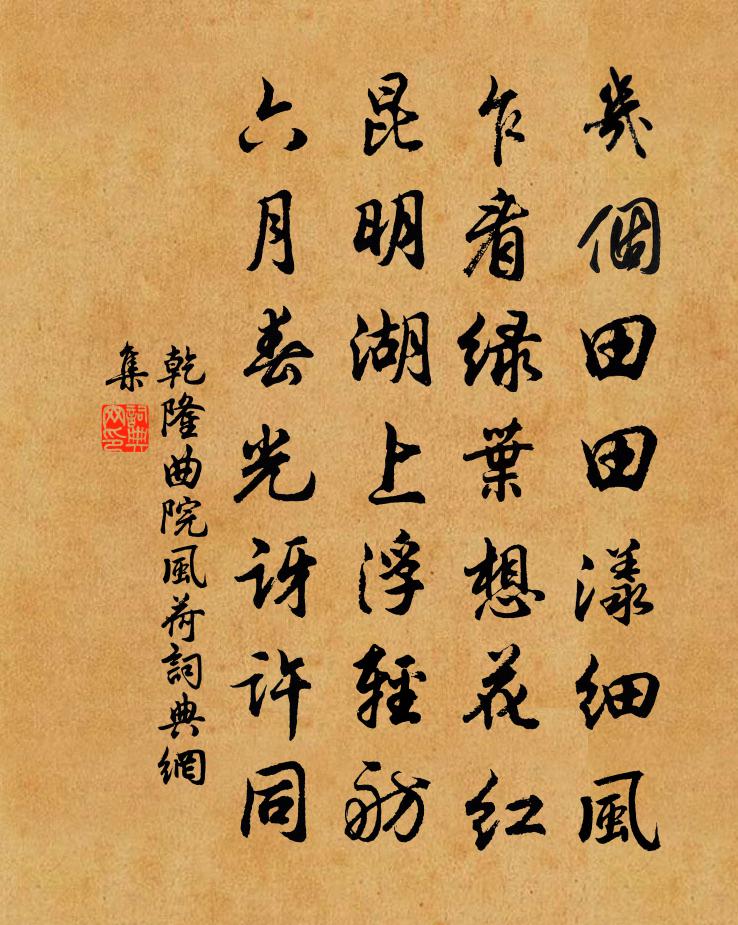 幾個田田漾細風
乍看綠葉想花紅
昆明湖上浮輕舫
六月春光訝許同
乾隆曲院風荷詞典網
集
詞典
网印